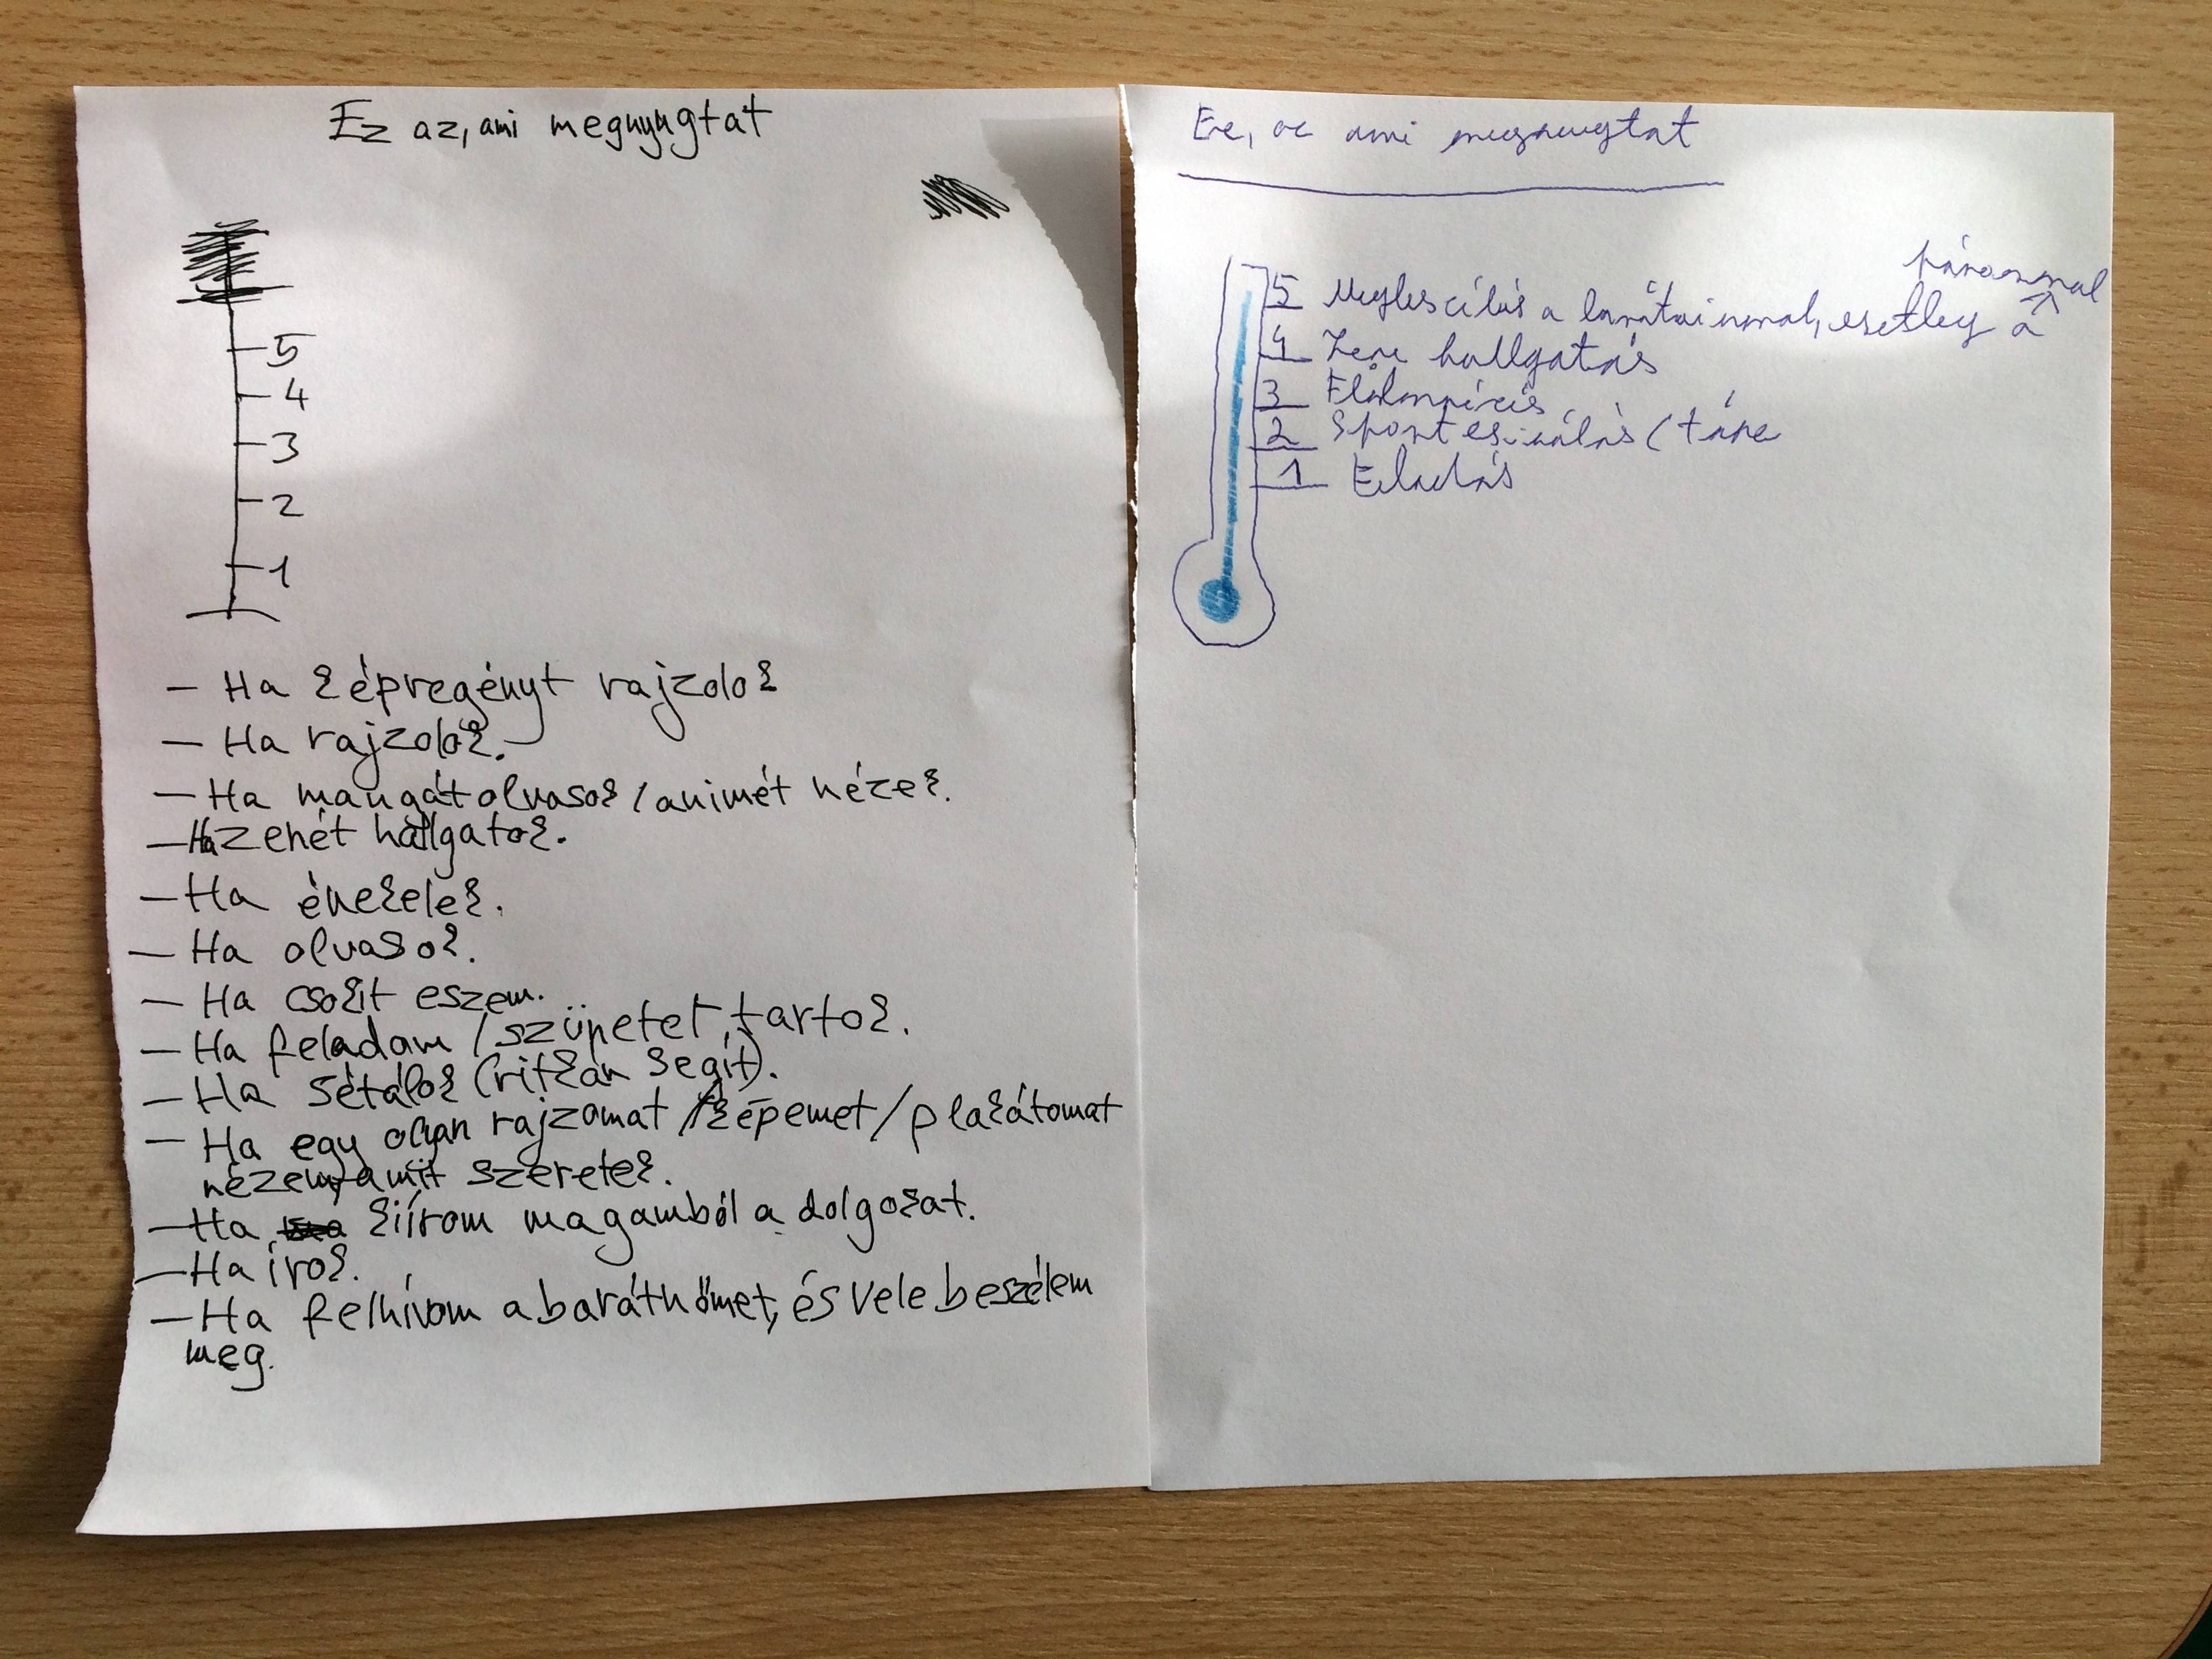 Ez az, ami megnyugtat
5
4
3
2
1
- Ha képregényt rajzolok
- Ha rajzolok.
- Ha mangát olvasok / animét nézek.
- Ha zenét hallgatok.
- Ha énekelek.
- Ha olvasok.
- Ha csokit eszem.
- Ha feladom / szünetet tartok.
- Ha sétálok (ritkán segít).
- Ha egy olyan rajzomat / képemet / plakátomat
nézem, amit szeretek.
- Ha kiírom magamból a dolgokat.
- Ha írok.
- Ha felhívom a barátnőmet, és vele beszélem
meg.
Ez, az ami megnyugtat
párommal
5 a barátaimmal, esetleg a
4 Zene hallgatás
3
2 Sport csinálás (tánc
1